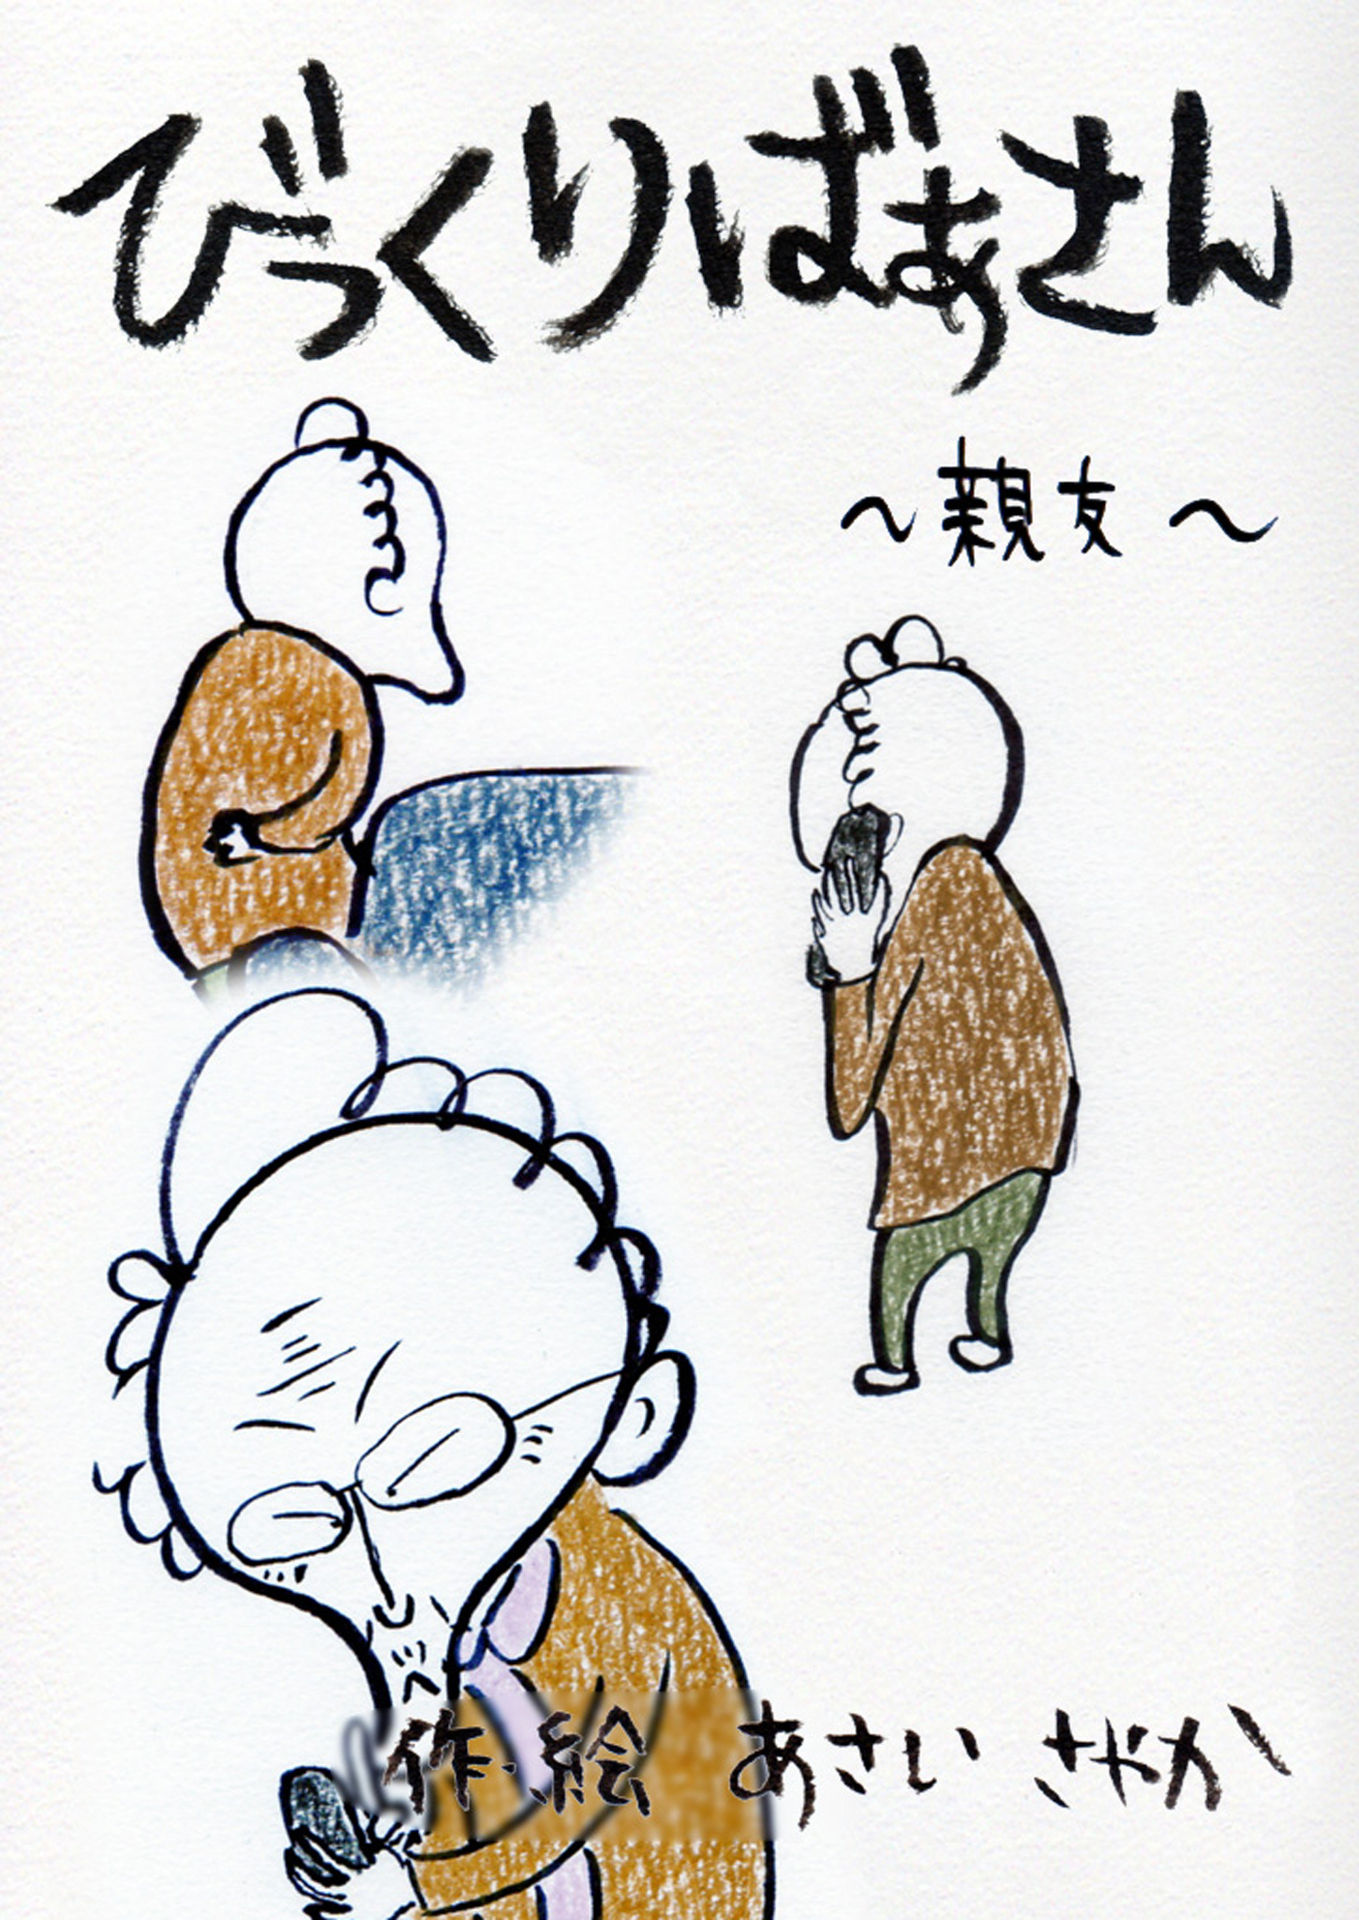 びっくりばぁさん
～親友～
作・絵 あさい さやか